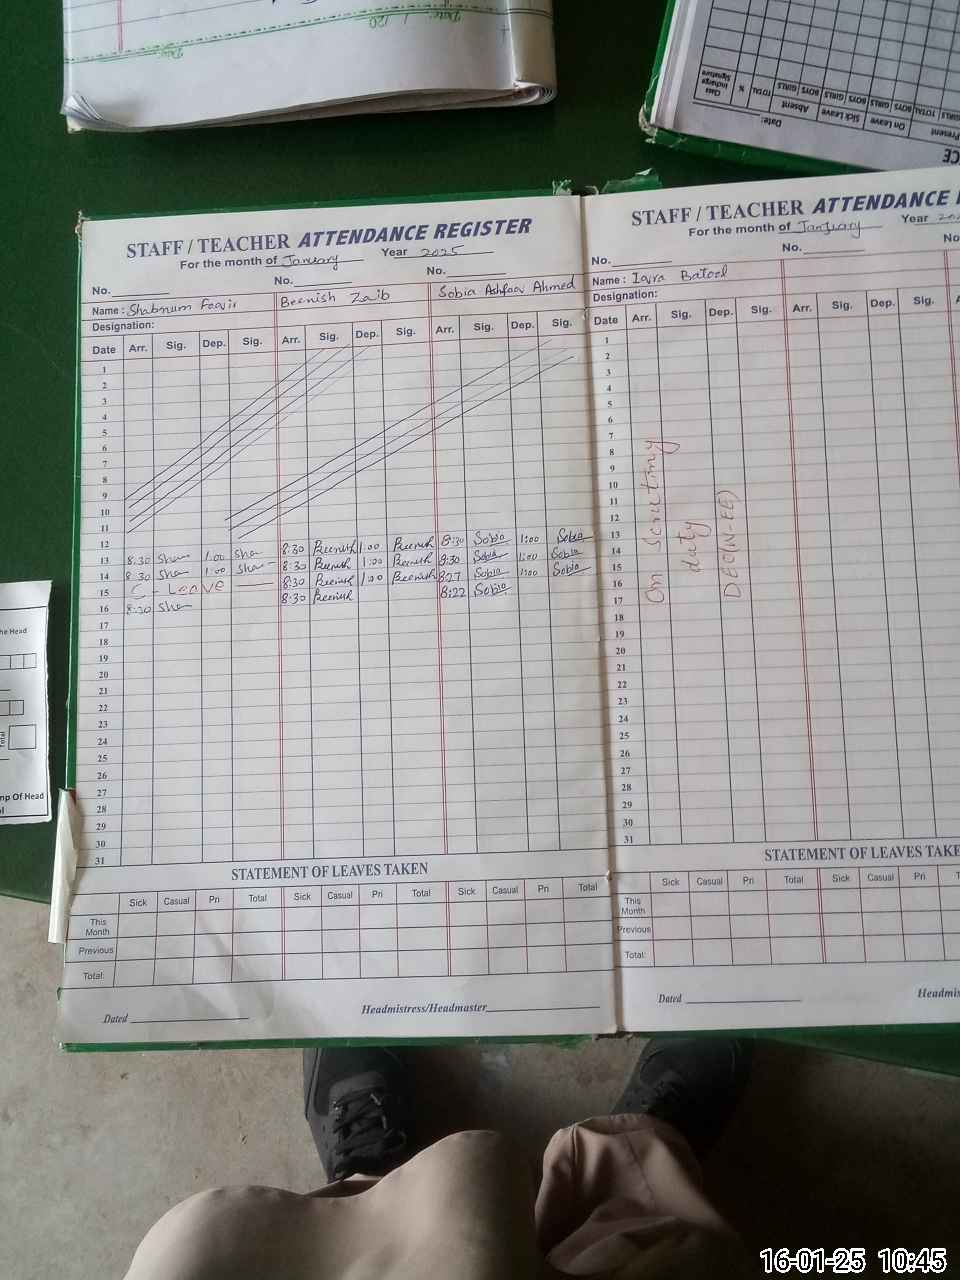 Date: / /20
Date:
Class Incharge Signature
%
TOTAL
GIRLS
BOYS
GIRLS
BOYS
GIRLS
BOYS
TOTAL
GIRLS
Absent
Sick Leave
On Leave
Present
Date:
CE
STAFF / TEACHER ATTENDANCE REGISTER
For the month of January Year 2025
No. No. No.
Name: Shabnum Beenish Zaib Sobia Ashfaq Ahmed
Designation:
Date Arr. Sig. Dep. Sig. Arr. Sig. Dep. Sig. Arr. Sig. Dep. Sig.
1
2
3
4
5
6
7
8
9
10
11
12
13 8:30 Sha 1:00 Sha 8:30 Beenish 1:00 Beenish 8:30 Sobia 1:00 Sobia
14 8:30 Sha 1:00 Sha 8:30 Beenish 1:00 Beenish 8:30 Sobia 1:00 Sobia
15 C - Leave 8:30 Beenish 1:00 Beenish 8:27 Sobia 1:00 Sobia
16 8:30 Sha 8:30 Beenish 8:22 Sobia
17
18
19
20
21
22
23
24
25
26
27
28
29
30
31
STATEMENT OF LEAVES TAKEN
Sick Casual Pri Total Sick Casual Pri Total Sick Casual Pri Total
This Month
Previous
Total:
Dated Headmistress/Headmaster
STAFF / TEACHER ATTENDANCE
For the month of January Year
No. No. No
Name: Iqra Batool
Designation:
Date Arr. Sig. Dep. Sig. Arr. Sig. Dep. Sig.
1
2
3
4
5
6
7
8
9
10
11
12
13
14
15
16
17
18
19
20
21
22
23
24
25
26
27
28
29
30
31
On Scrutiny
duty
DEO(W-EE)
STATEMENT OF LEAVES TAKE
Sick Casual Pri Total Sick Casual Pri
This Month
Previous
Total:
Dated Headmis
he Head
Total
mp Of Head
16-01-25 10:45